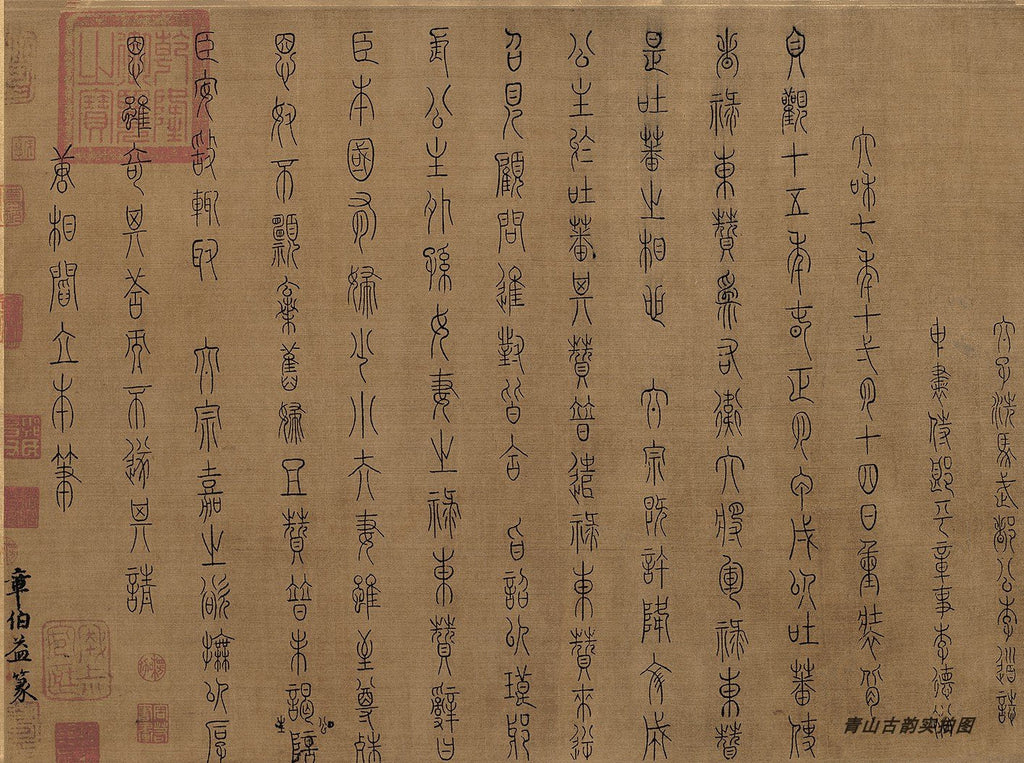 太子洗馬武都公李道誌
中書侍郎平章事李德裕
大和七年十弌月十四日重裝背
貞觀十五年春正月甲戌以吐蕃使
者祿東贊爲右衛大將軍祿東贊
是吐蕃之相也 太宗既許降文成
公主於吐蕃其贊普遣祿東贊來逆
召見顧問進對皆合 旨詔以瑯琊
長公主外孫女妻之祿東贊辭曰
臣本國有婦少小夫妻雖至尊殊
恩奴不願棄舊婦且贊普未謁公主陪
臣安敢輒取 太宗嘉之欲撫以厚
恩雖奇其答而不遂其請
唐相閻立本筆
章伯益篆
乾隆御覽之寶
青山古韵实拍图